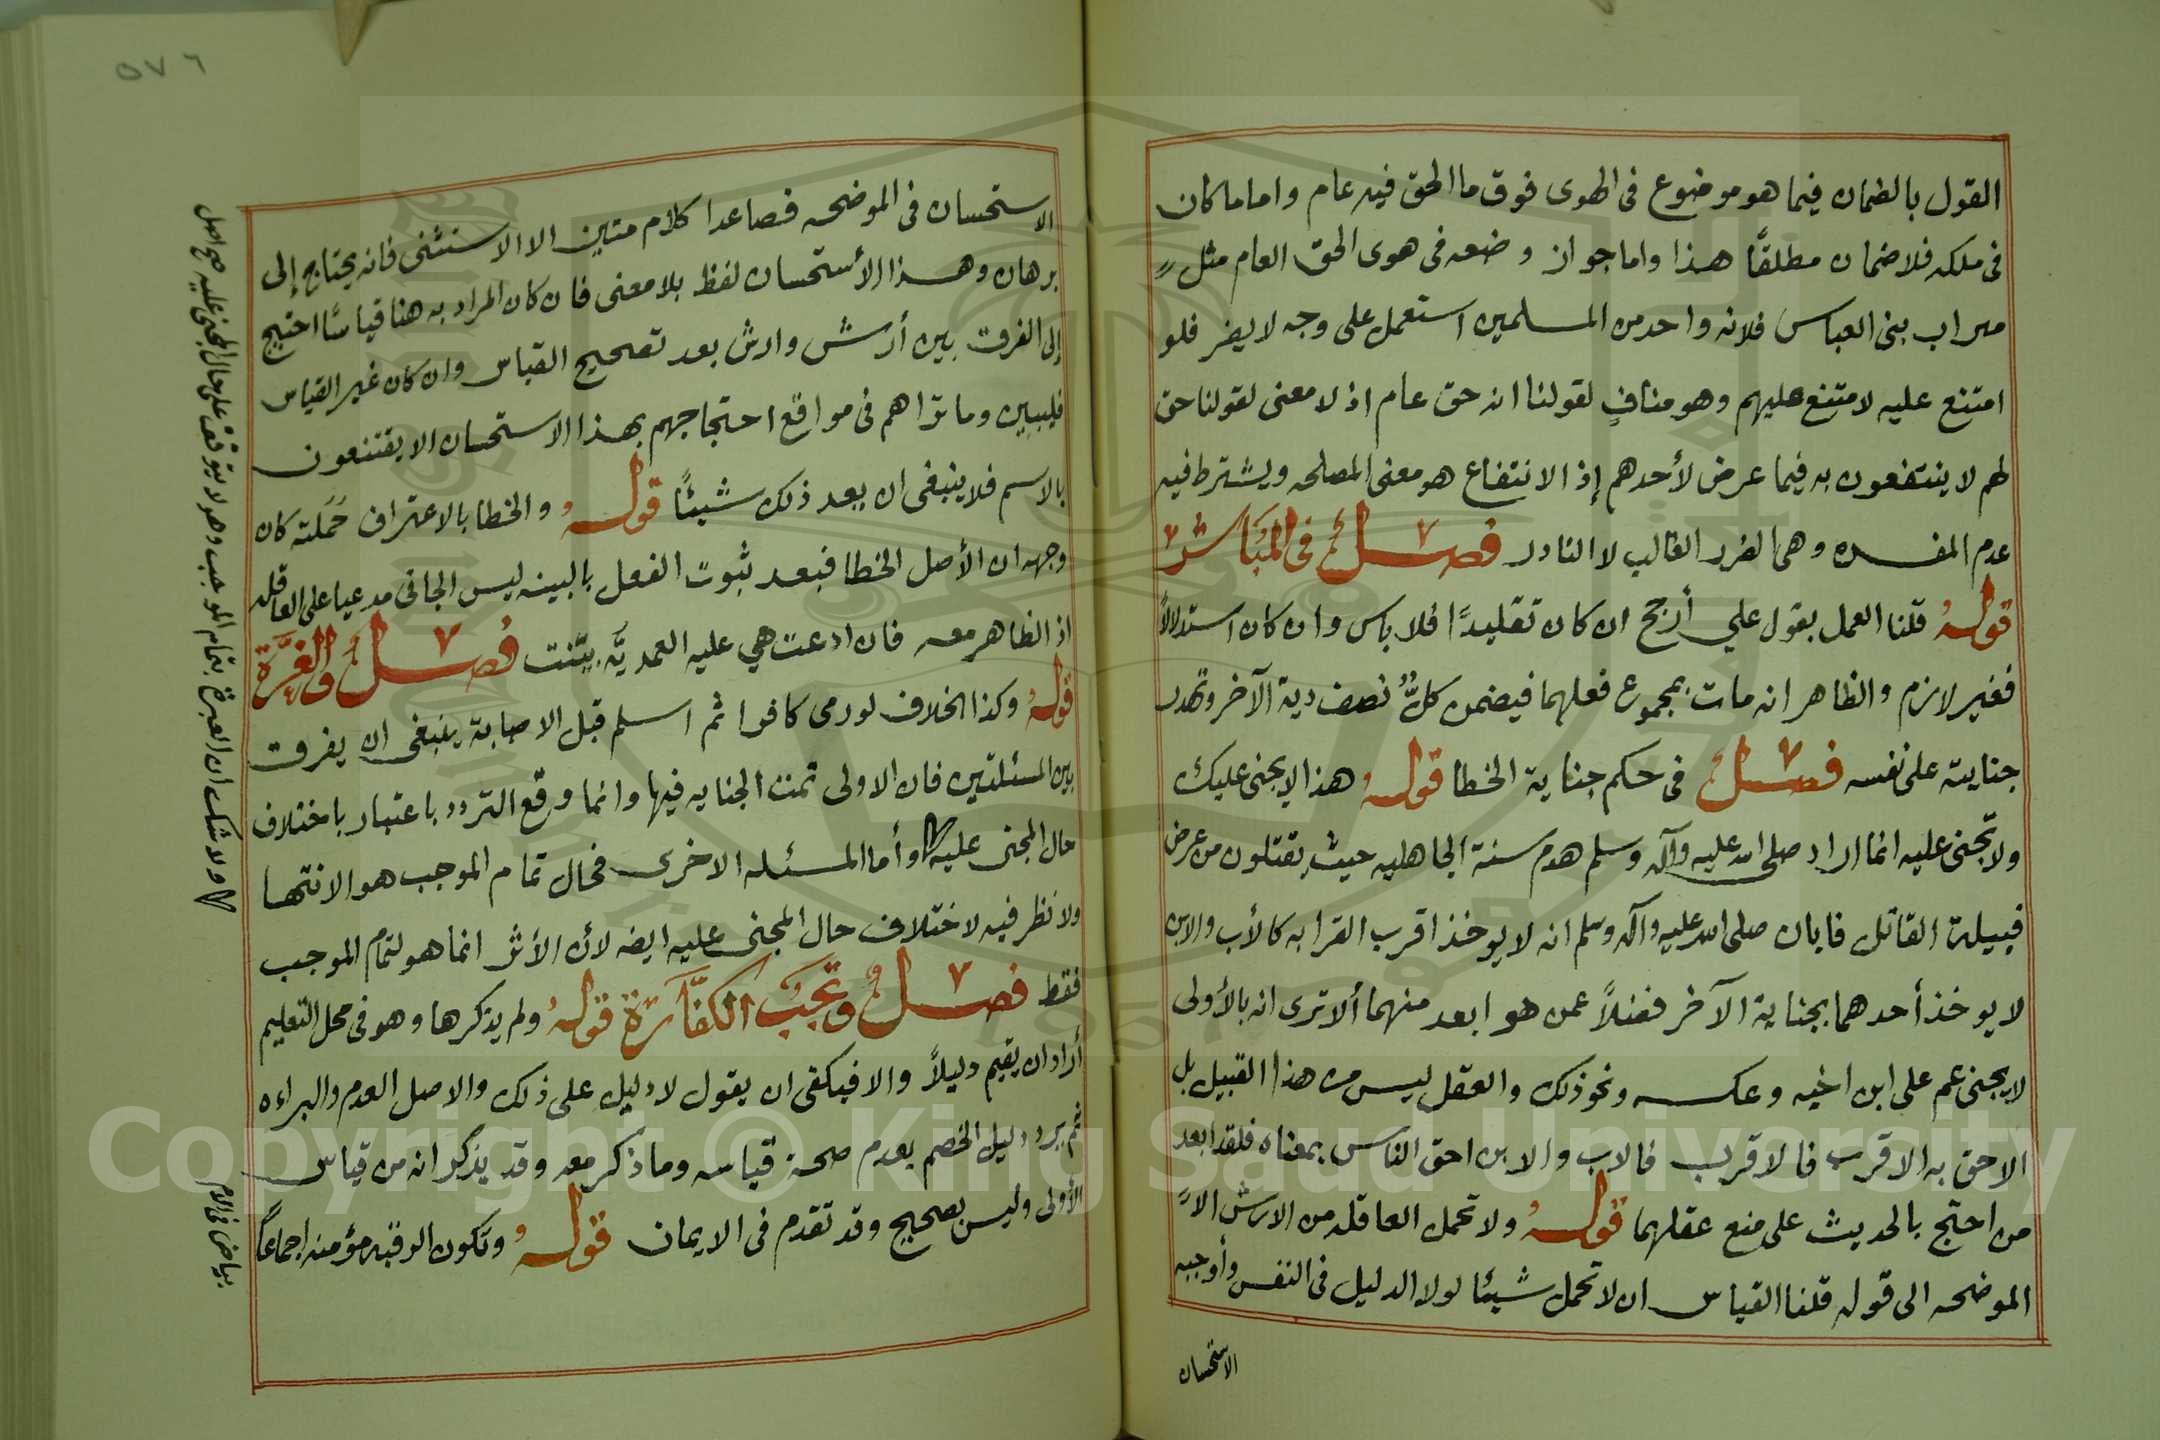 القول بالضمان فيما هو موضوع فى الهوى فوق ما الحق فيه عام واما ما كان
فى ملكه فلا ضمان مطلقًا هذا واما جواز وضعه فى هوى الحق العام مثل
ميزاب بنى العباس فلانه واحد من المسلمين استعمل على وجه لا يضر فلو
امتنع عليه لامتنع عليهم وهو منافٍ لقولنا انه حق عام اذ لا معنى لقولنا حق
لهم لا ينتفعون به فيما عرض لأحدهم إذ الانتفاع هو معنى المصلحه ويشترط فيه
عدم المفسده وهى الضرر الغالب لا النادر فصل فى المباشر
قوله قلنا العمل بقول علي أرجح ان كان تقليدًا فلا باس وان كان استدلالاً
فغير لازم والظاهر انه مات بمجموع فعلهما فيضمن كلٌّ نصف دية الآخر وتهدر
جنايته على نفسه فصل فى حكم جناية الخطا قوله هذا لا يجنى عليك
ولا تجنى عليه انما اراد صلى الله عليه وآله وسلم هدم سنة الجاهليه حيث يقتلون من عرض
قبيلة القاتل فابان صلى الله عليه وآله وسلم انه لا يوخذ اقرب القرابه كالأب والابن
لا يوخذ أحدهما بجناية الآخر فضلاً عمن هو ابعد منهما ألا ترى انه بالأولى
لا يجنى عم على ابن اخيه وعكسه ونحو ذلك والعقل ليس من هذا القبيل بل
الاحق به الاقرب فالاقرب فالاب والابن احق الناس بمعناه فلقد ابعد
من احتج بالحديث على منع عقلهما قوله ولا تحمل العاقله من الارش الا
الموضحه الى قوله قلنا القياس ان لا تحمل شيئا لولا الدليل فى النفس وأوجبه
الاستحسان
٥٧٦
الاستحسان فى الموضحه فصاعدا كلام متين الا الاستثنى فانه يحتاج إلى
برهان وهذا الأستحسان لفظ بلا معنى فان كان المراد به هنا قياسًا احتيج
إلى الفرق بين أرش وارش بعد تصحيح القياس وان كان غير القياس
فليبين وما تراهم فى مواقع احتجاجهم بهذا الاستحسان الا يقتنعون
بالاسم فلا ينبغى ان يعد ذلك شيئًا قوله والخطا بالاعتراف حَمَلته كان
وجهه ان الأصل الخطا فبعد ثبوت الفعل بالبينه ليس الجانى مدعيا على العاقله
اذ الظاهر معه فان ادعت هي عليه العمديَّه بيّنت فصل والغرّة
قوله وكذا الخلاف لو رمى كافرا ثم اسلم قبل الاصابة ينبغى ان يفرق
بين المسئلتين فان الاولى تمت الجنايه فيها وانما وقع التردد باعتبار باختلاف
حال المجنى عليه وأما المسئله الاخرى فحال تمام الموجب هو الانتها
ولا نظر فيه لاختلاف حال المجنى عليه ايضه لأن الأثر انما هو لتمام الموجب
فقط فصل وتجب الكفّارة قوله ولم يذكرها وهو فى محل التعليم
أراد ان يقيم دليلاً والا فيكفى ان يقول لا دليل على ذلك والاصل العدم والبراءه
ثم يرد دليل الخصم بعدم صحة قياسه وما ذكر معه وقد يذكر انه من قياس
الأولى وليس بصحيح وقد تقدم فى الايمان قوله وتكون الرقبه مؤمنه اجماعاً
ولا شك ان العبرة بتمام الموجب وهو لا يتوقف على حال المجنى عليه صح اصل
بياض فى الام